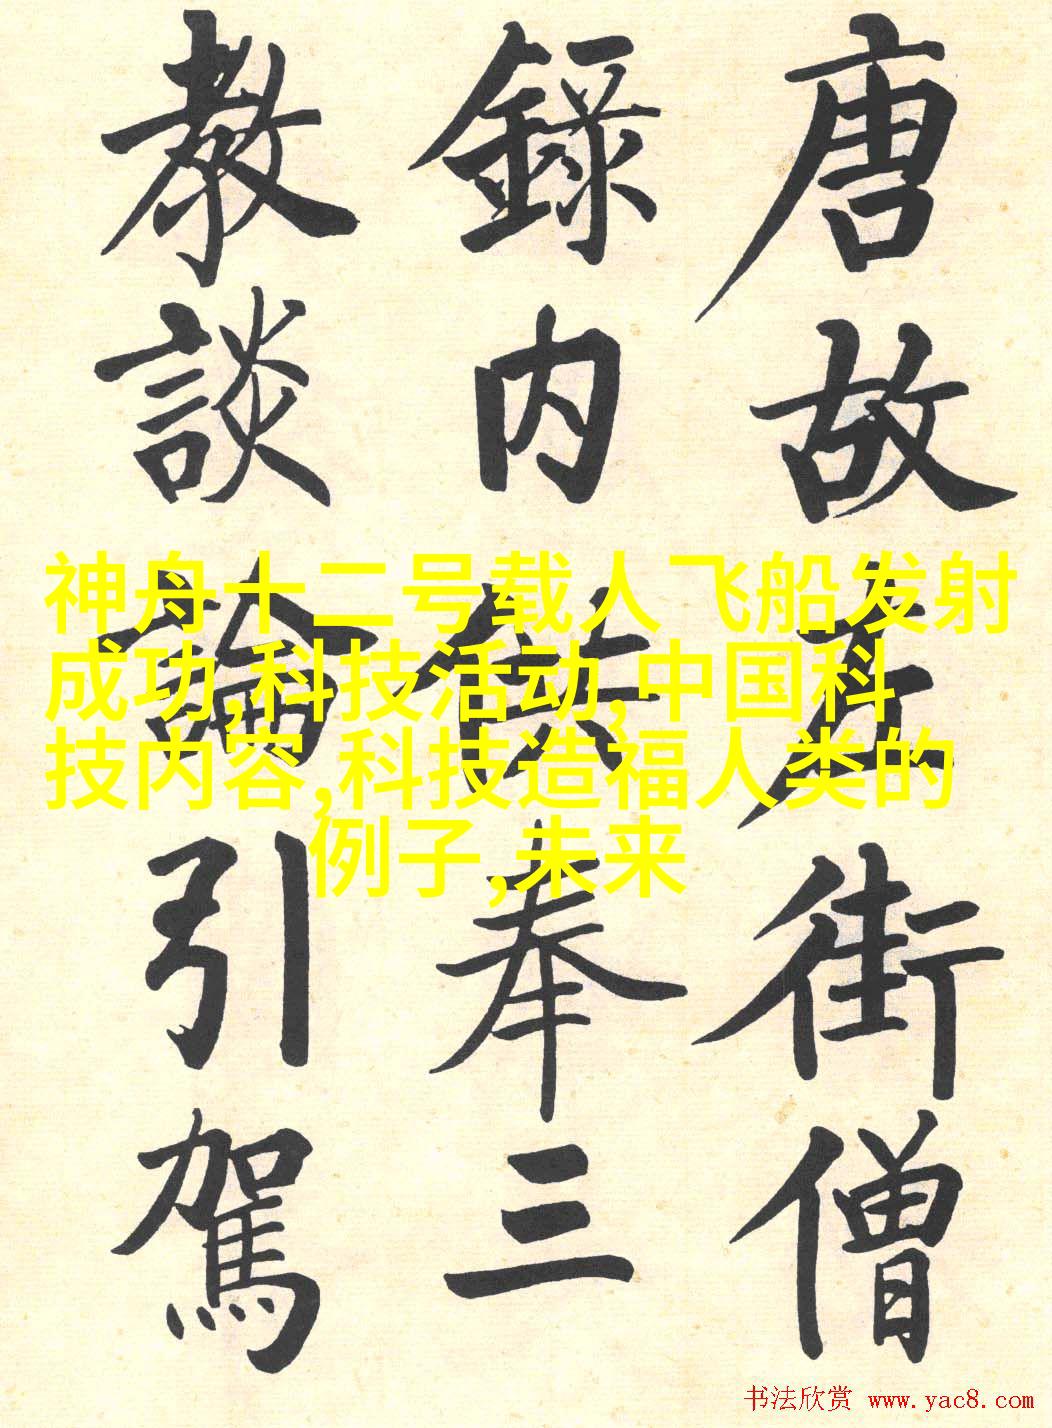 唐故左街僧
錄内供奉三
教談論引駕
神舟十二号载人飞船发射
成功,科技活动,中国科
技内容,科技造福人类的
例子,未来
书法欣赏 www.yac8.com